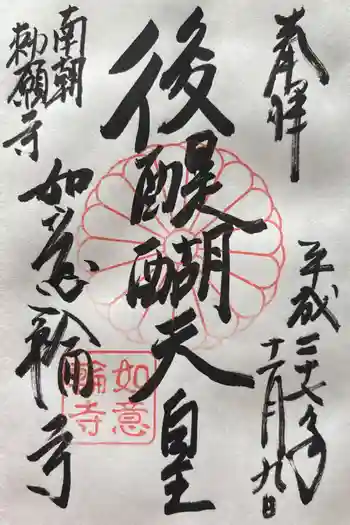 奉拝
平成二十八年
十一月九日
後醍醐天皇
南朝
勅願寺
如意輪寺
如意
輪寺